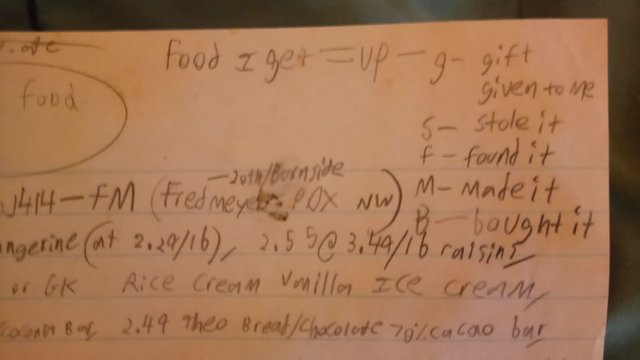 Food I get = up - g - gift
given to me
food
S - stole it
F - found it
-20th/Burnside
M - Made it
414-FM (Fredmeyer PDX NW)
B - bought it
ngerine (at 2.29/lb), 2.55 @ 3.49/lb raisins,
or GK Rice Cream Vanilla Ice Cream,
Bar, 2.49 Theo Bread/Chocolate 70% cacao bar